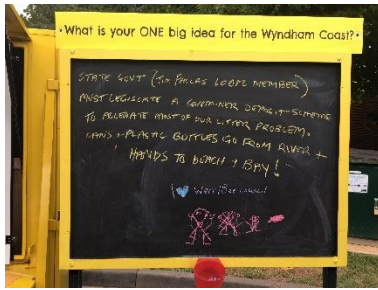 What is your ONE big idea for the Wyndham Coast?
STATE GOVT (TIM PALLAS LOCAL MEMBER)
MUST LEGISLATE A CONTAINER DEPOSIT SCHEME
TO ALLEVIATE MOST OF OUR LITTER PROBLEM.
CANS + PLASTIC BOTTLES GO FROM RIVER +
HANDS TO BEACH + BAY!
I